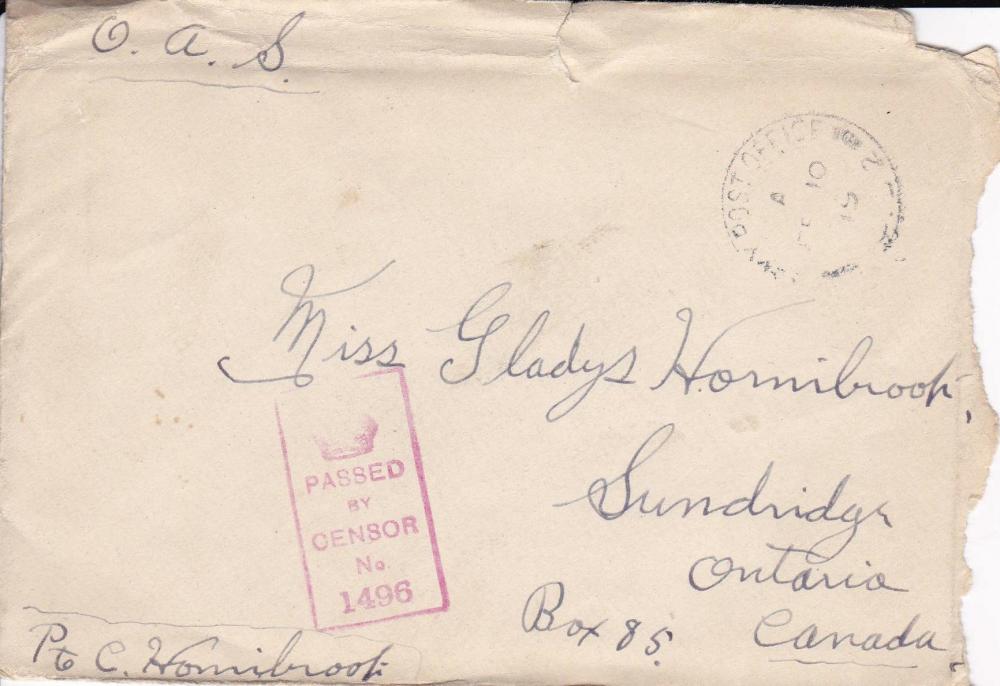 O. A. S.
POST OFFICE
A 10
15
Miss Gladys Hornibrook,
PASSED
BY
CENSOR
No.
1496
Sundridge
Ontario
Box 85.
Canada
Pte C. Hornibrook